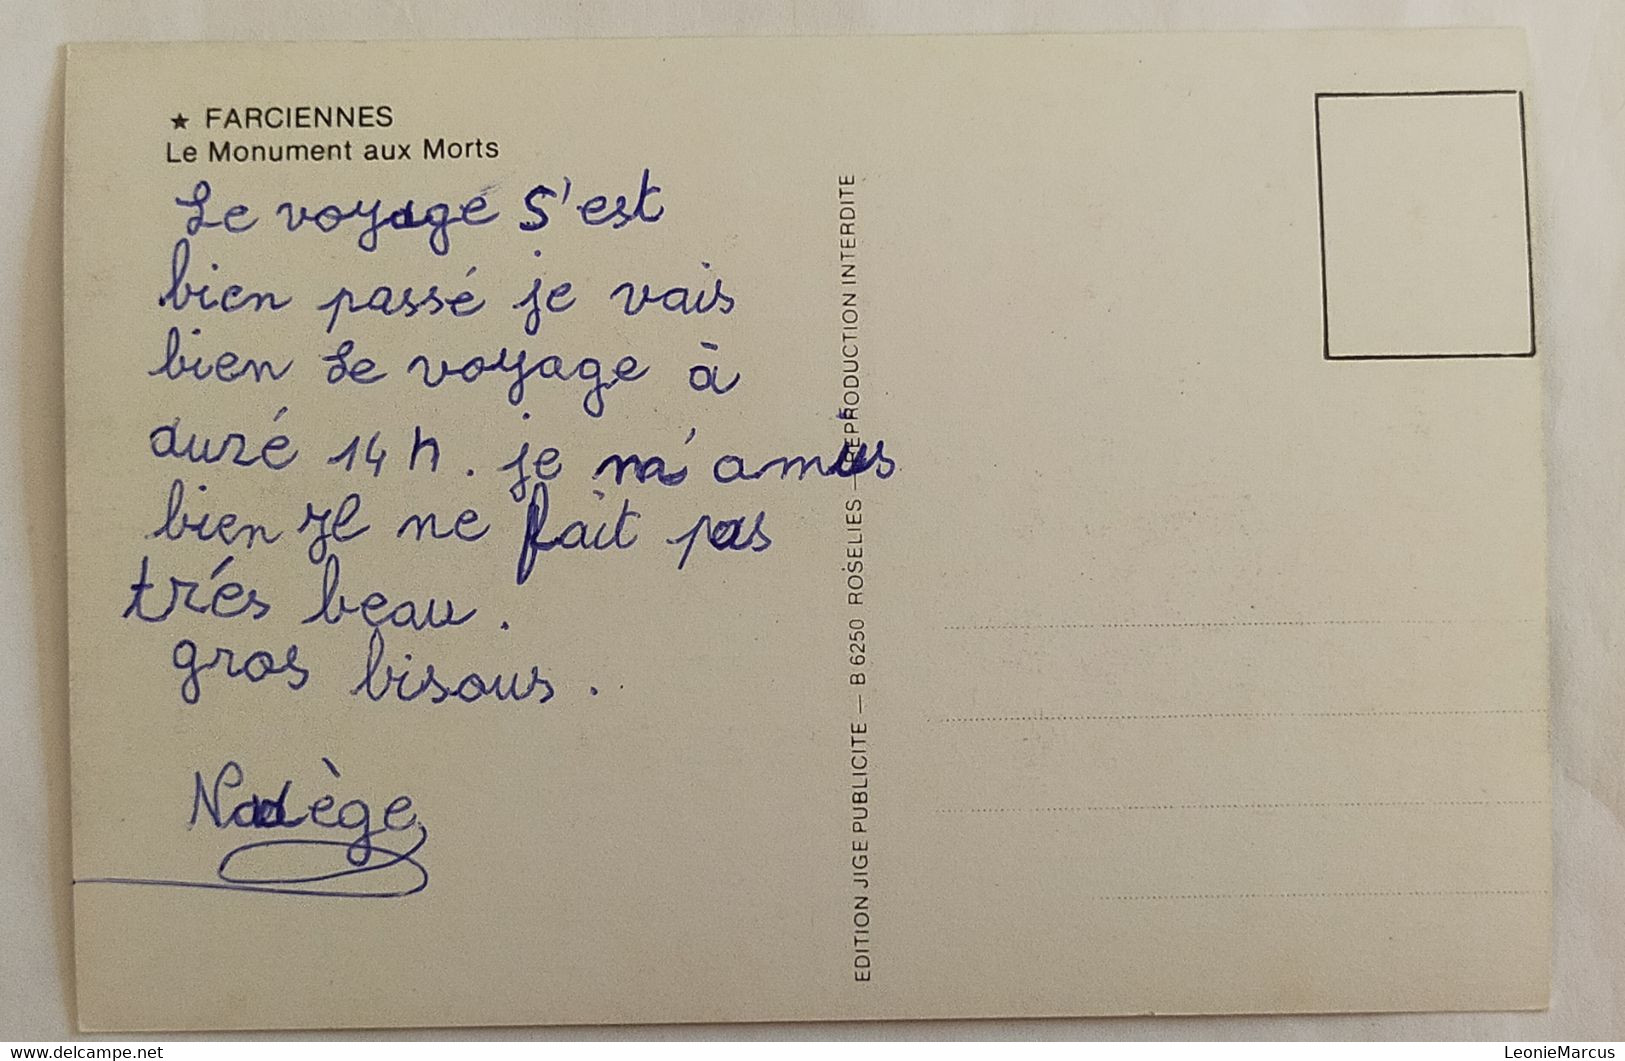 ★ FARCIENNES
Le Monument aux Morts
Le voyage s'est
bien passé je vais
bien Le voyage à
duré 14 h. je m'amus
bien Il ne fait pas
trés beau.
gros bisous.
Nadège
EDITION JIGE PUBLICITE — B 6250 ROSELIES — REPRODUCTION INTERDITE
delcampe.net
LeonieMarcus